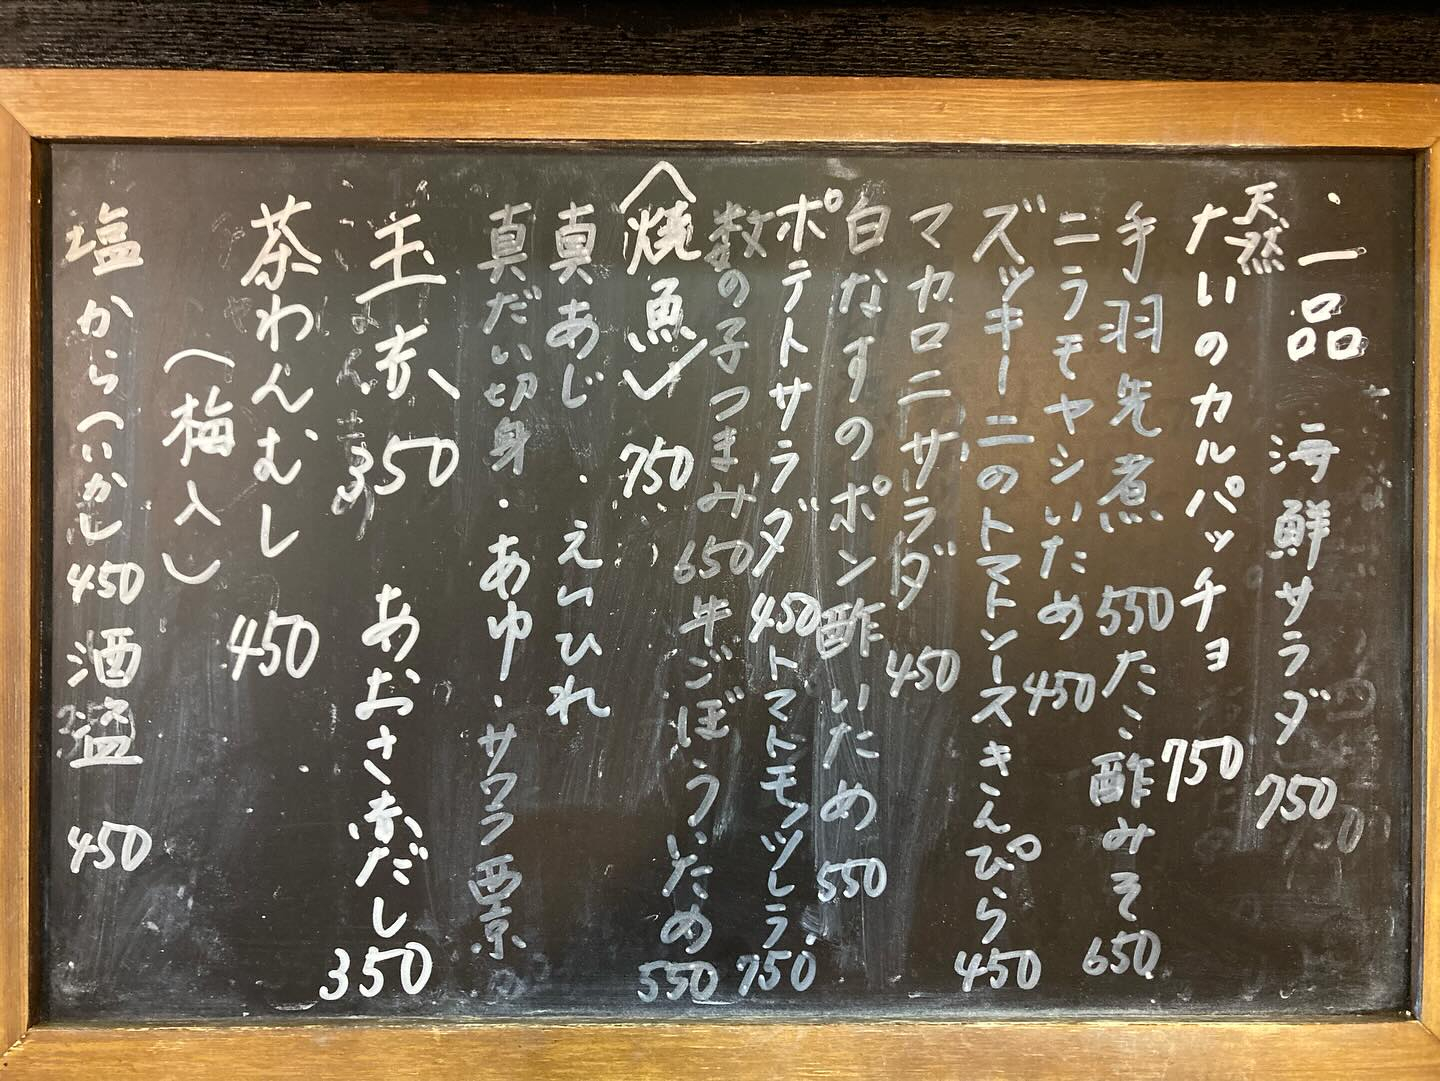 ・一品 海鮮サラダ 750
天然
たいのカルパッチョ 750
手羽先煮 550 たこ酢みそ 650
ニラモヤシいため 450
ズッキーニのトマトソースきんぴら 450
マカロニサラダ 450
白なすのポン酢いため 550
ポテトサラダ 450 トマトモッツレラ 750
数の子つまみ 650 牛ごぼういため 550
焼魚 750
真あじ・えいひれ
真だい切身・あゆ・サワラ西京
玉 赤 350 あおさ赤だし 350
茶わんむし 450
(梅入)
塩から(いか) 450 酒盗 450